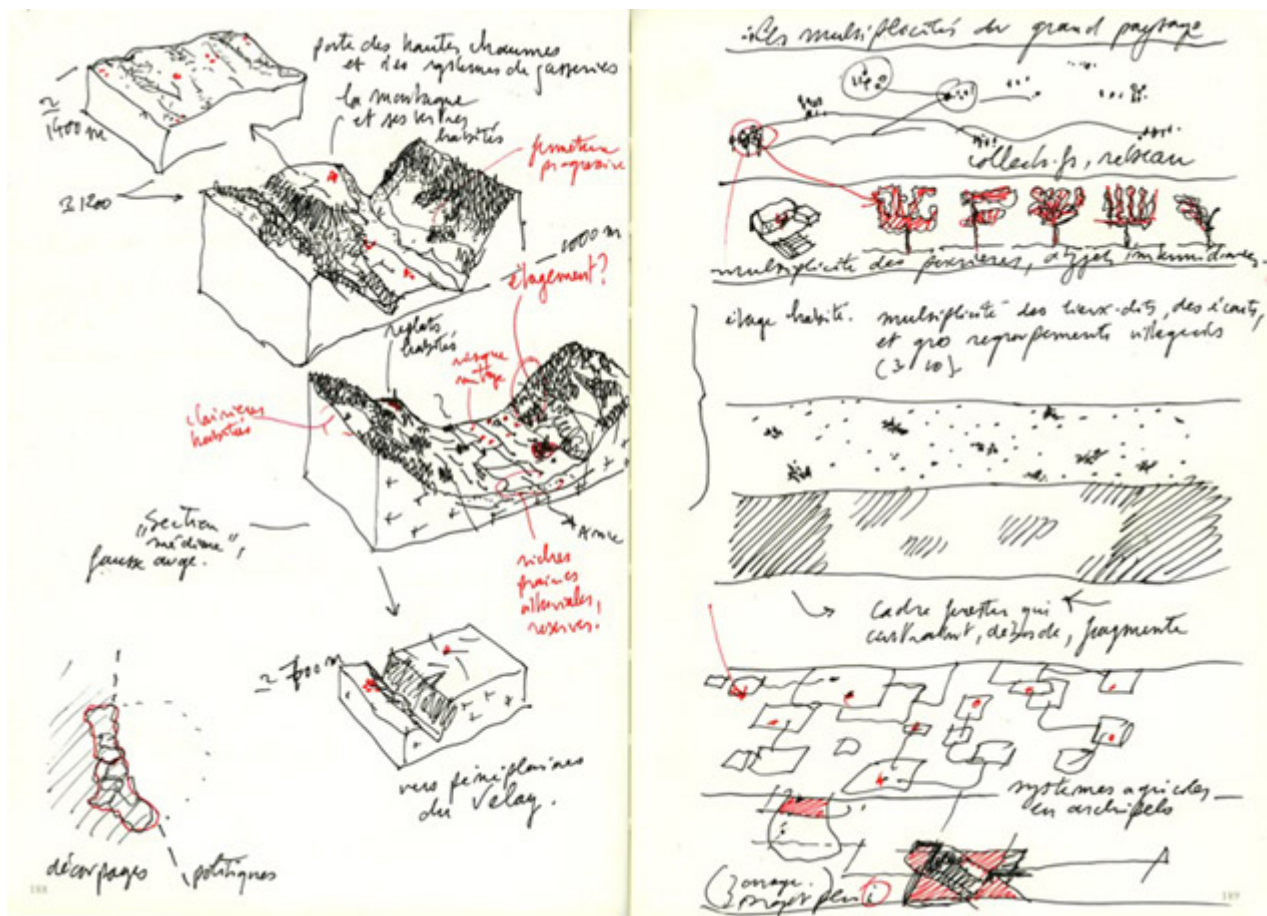 porte des hautes chaumes
et des systemes de jasseries
la montagne
et ses versres
habités
fermeture
progressive
≃
1400 m
≃ 1200
1000 m
étagement?
replats
habités
risque
mitage
clairières
habitées
"Section
médiane",
fausse auge.
riches
prairies
alluviales,
reserves!
≃ 700 m
vers pénéplaines
du Velay.
découpages
politiques
188
Les multiplicités du grand paysage
collectifs, réseau
multiplicité des
étage habité. multiplicité des lieux-dits, des écarts,
et gros regroupements villageois
(3 10)
cadre forestier qui
déborde, fragmente
systemes agricoles
en archipels
189